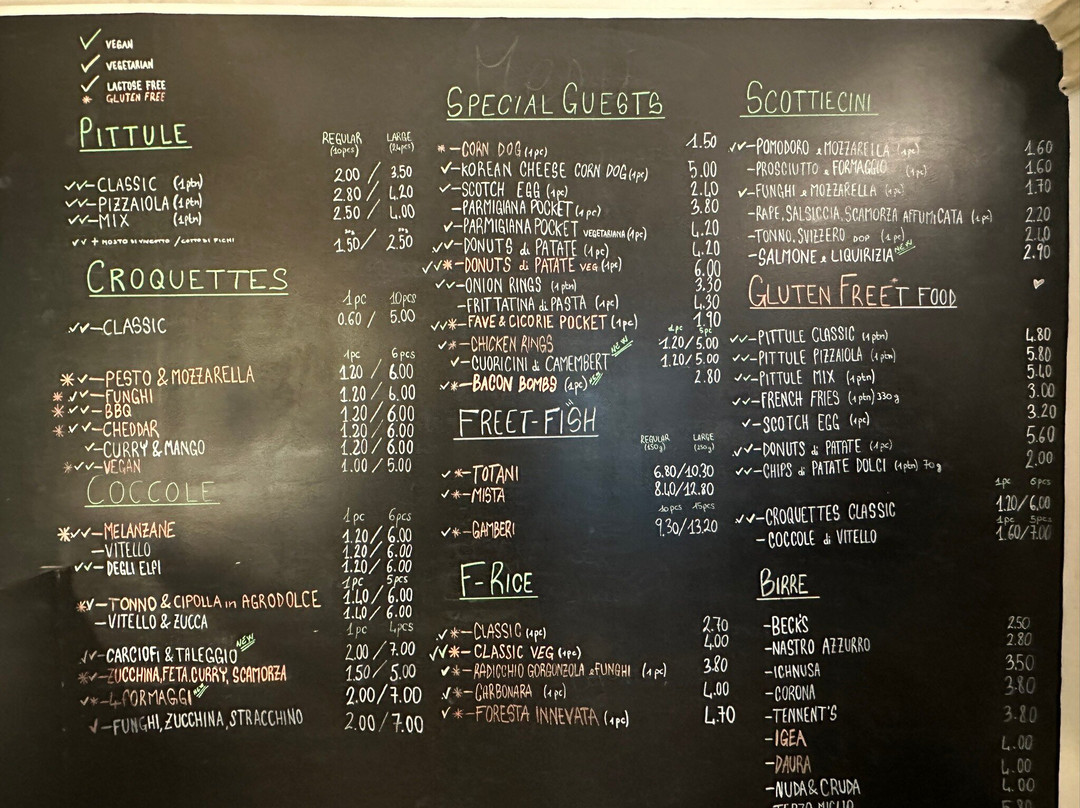 ✓ VEGAN
✓ VEGETARIAN
✓ LACTOSE FREE
* GLUTEN FREE
PITTULE
REGULAR (10pcs) LARGE (24pcs)
✓✓-CLASSIC (1ptn) 2.00 / 3.50
✓✓-PIZZAIOLA (1ptn) 2.80 / 4.20
✓✓-MIX (1ptn) 2.50 / 4.00
✓✓ + MOSTO DI VINCOTTO / COTTO DI FICHI 1.50 / 2.50
CROQUETTES
1pc 10pcs
✓✓-CLASSIC 0.60 / 5.00
1pc 6pcs
*✓-PESTO & MOZZARELLA 1.20 / 6.00
*✓✓-FUNGHI 1.20 / 6.00
*✓✓-BBQ 1.20 / 6.00
*✓✓-CHEDDAR 1.20 / 6.00
✓-CURRY & MANGO 1.20 / 6.00
*✓✓-VEGAN 1.00 / 5.00
COCCOLE
1pc 6pcs
*✓✓-MELANZANE 1.20 / 6.00
-VITELLO 1.20 / 6.00
✓✓-DEGLI ELFI 1.20 / 6.00
1pc 5pcs
*✓-TONNO & CIPOLLA in AGRODOLCE 1.40 / 6.00
-VITELLO & ZUCCA 1.40 / 6.00
1pc 4pcs
✓✓-CARCIOFI & TALEGGIO NEW 2.00 / 7.00
*✓-ZUCCHINA,FETA,CURRY, SCAMORZA 1.50 / 5.00
✓*-4 FORMAGGI NEW 2.00 / 7.00
✓-FUNGHI, ZUCCHINA, STRACCHINO 2.00 / 7.00
SPECIAL GUESTS
*-CORN DOG (1pc) 1.50
✓-KOREAN CHEESE CORN DOG (1pc) 5.00
✓-SCOTCH EGG (1pc) 2.40
-PARMIGIANA POCKET (1pc) 3.80
✓-PARMIGIANA POCKET VEGETARIANA (1pc) 4.20
✓✓-DONUTS di PATATE (1pc) 4.20
✓✓*-DONUTS di PATATE VEG (1pc) 6.00
✓✓-ONION RINGS (1ptn) 3.30
-FRITTATINA di PASTA (1pc) 4.30
✓✓*-FAVE & CICORIE POCKET (1pc) 1.90
1pc 5pc
✓*-CHICKEN RINGS 1.20/5.00
✓-CUORICINI di CAMEMBERT NEW 1.20/5.00
✓*-BACON BOMBS (1pc) NEW 2.80
FREET-FISH
REGULAR (150g) LARGE (250g)
✓*-TOTANI 6.80/10.30
✓*-MISTA 8.40/12.80
10pcs 15pcs
✓*-GAMBERI 9.30/13.20
F-RICE
✓*-CLASSIC (1pc) 2.70
✓✓*-CLASSIC VEG (1pc) 4.00
✓*-RADICCHIO GORGONZOLA e FUNGHI (1pc) 3.80
✓*-CARBONARA (1pc) 4.00
✓*-FORESTA INNEVATA (1pc) 4.70
SCOTTIECINI
✓✓-POMODORO e MOZZARELLA (1pc) 1.60
-PROSCIUTTO e FORMAGGIO (1pc) 1.60
✓-FUNGHI e MOZZARELLA (1pc) 1.70
-RAPE, SALSICCIA, SCAMORZA AFFUMICATA (1pc) 2.20
-TONNO, SVIZZERO DOP (1pc) 2.40
-SALMONE e LIQUIRIZIA NEW 2.90
GLUTEN FREET FOOD
✓✓-PITTULE CLASSIC (1ptn) 4.80
✓✓-PITTULE PIZZAIOLA (1ptn) 5.80
✓✓-PITTULE MIX (1ptn) 5.40
✓✓-FRENCH FRIES (1ptn) 330g 3.00
✓-SCOTCH EGG (1pc) 3.20
✓✓-DONUTS di PATATE (1pc) 5.60
✓✓-CHIPS di PATATE DOLCI (1ptn) 70g 2.00
1pc 6pcs
✓✓-CROQUETTES CLASSIC 1.20/6.00
1pc 5pcs
-COCCOLE di VITELLO 1.60/7.00
BIRRE
-BECK'S 2.50
-NASTRO AZZURRO 2.80
-ICHNUSA 3.50
-CORONA 3.80
-TENNENT'S 3.80
-IGEA 4.00
-DAURA 4.00
-NUDA & CRUDA 4.00
TERZO MIGLIO